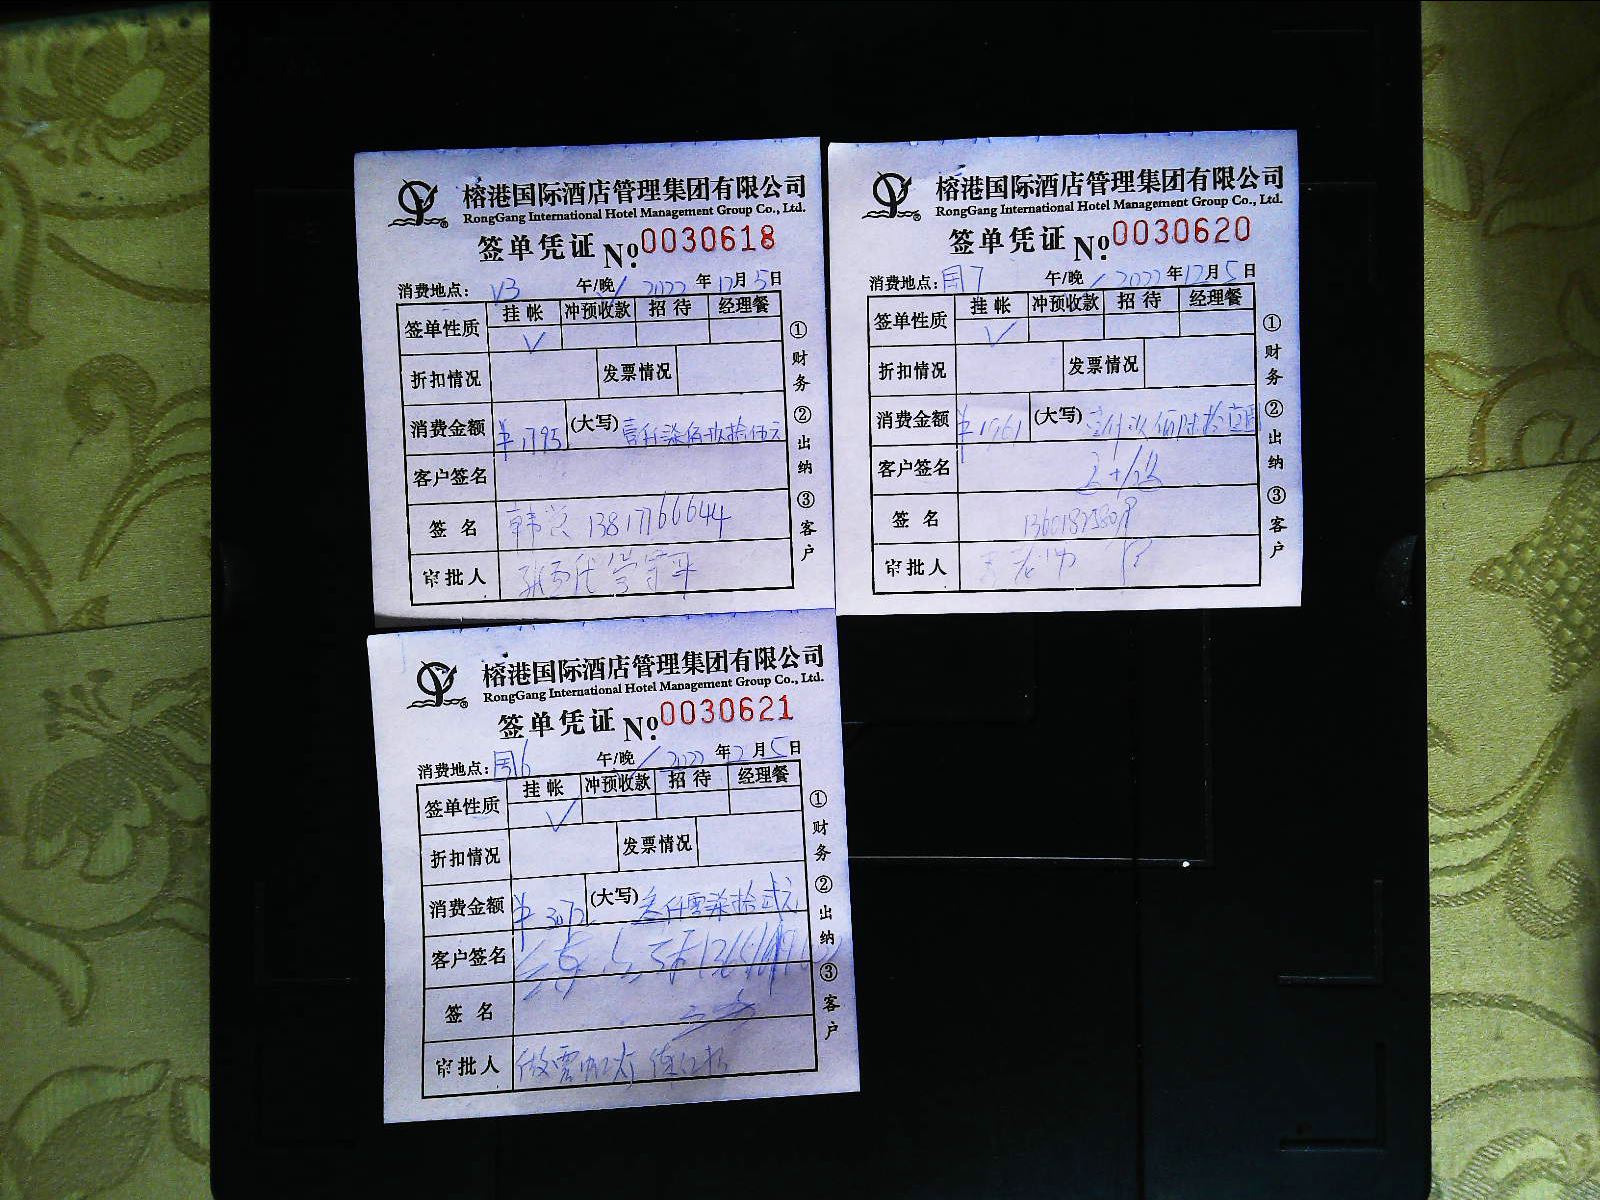 榕港国际酒店管理集团有限公司
RongGang International Hotel Management Group Co., Ltd.
签单凭证 No 0030618
消费地点: V3 午/晚 2022 年 12 月 5 日
签单性质 挂帐 冲预收款 招待 经理餐
√
折扣情况 发票情况
消费金额 ¥1795 (大写) 壹仟柒佰玖拾伍元
客户签名
签名 韩 13817766644
审批人
①财务 ②出纳 ③客户
榕港国际酒店管理集团有限公司
RongGang International Hotel Management Group Co., Ltd.
签单凭证 No 0030620
消费地点: 周7 午/晚 2022 年 12 月 5 日
签单性质 挂帐 冲预收款 招待 经理餐
√
折扣情况 发票情况
消费金额 (大写)
客户签名
签名
审批人
①财务 ②出纳 ③客户
榕港国际酒店管理集团有限公司
RongGang International Hotel Management Group Co., Ltd.
签单凭证 No 0030621
消费地点: 周6 午/晚 2022 年 12 月 5 日
签单性质 挂帐 冲预收款 招待 经理餐
√
折扣情况 发票情况
消费金额 ¥3072 (大写) 叁仟零柒拾贰元
客户签名
签名
审批人
①财务 ②出纳 ③客户